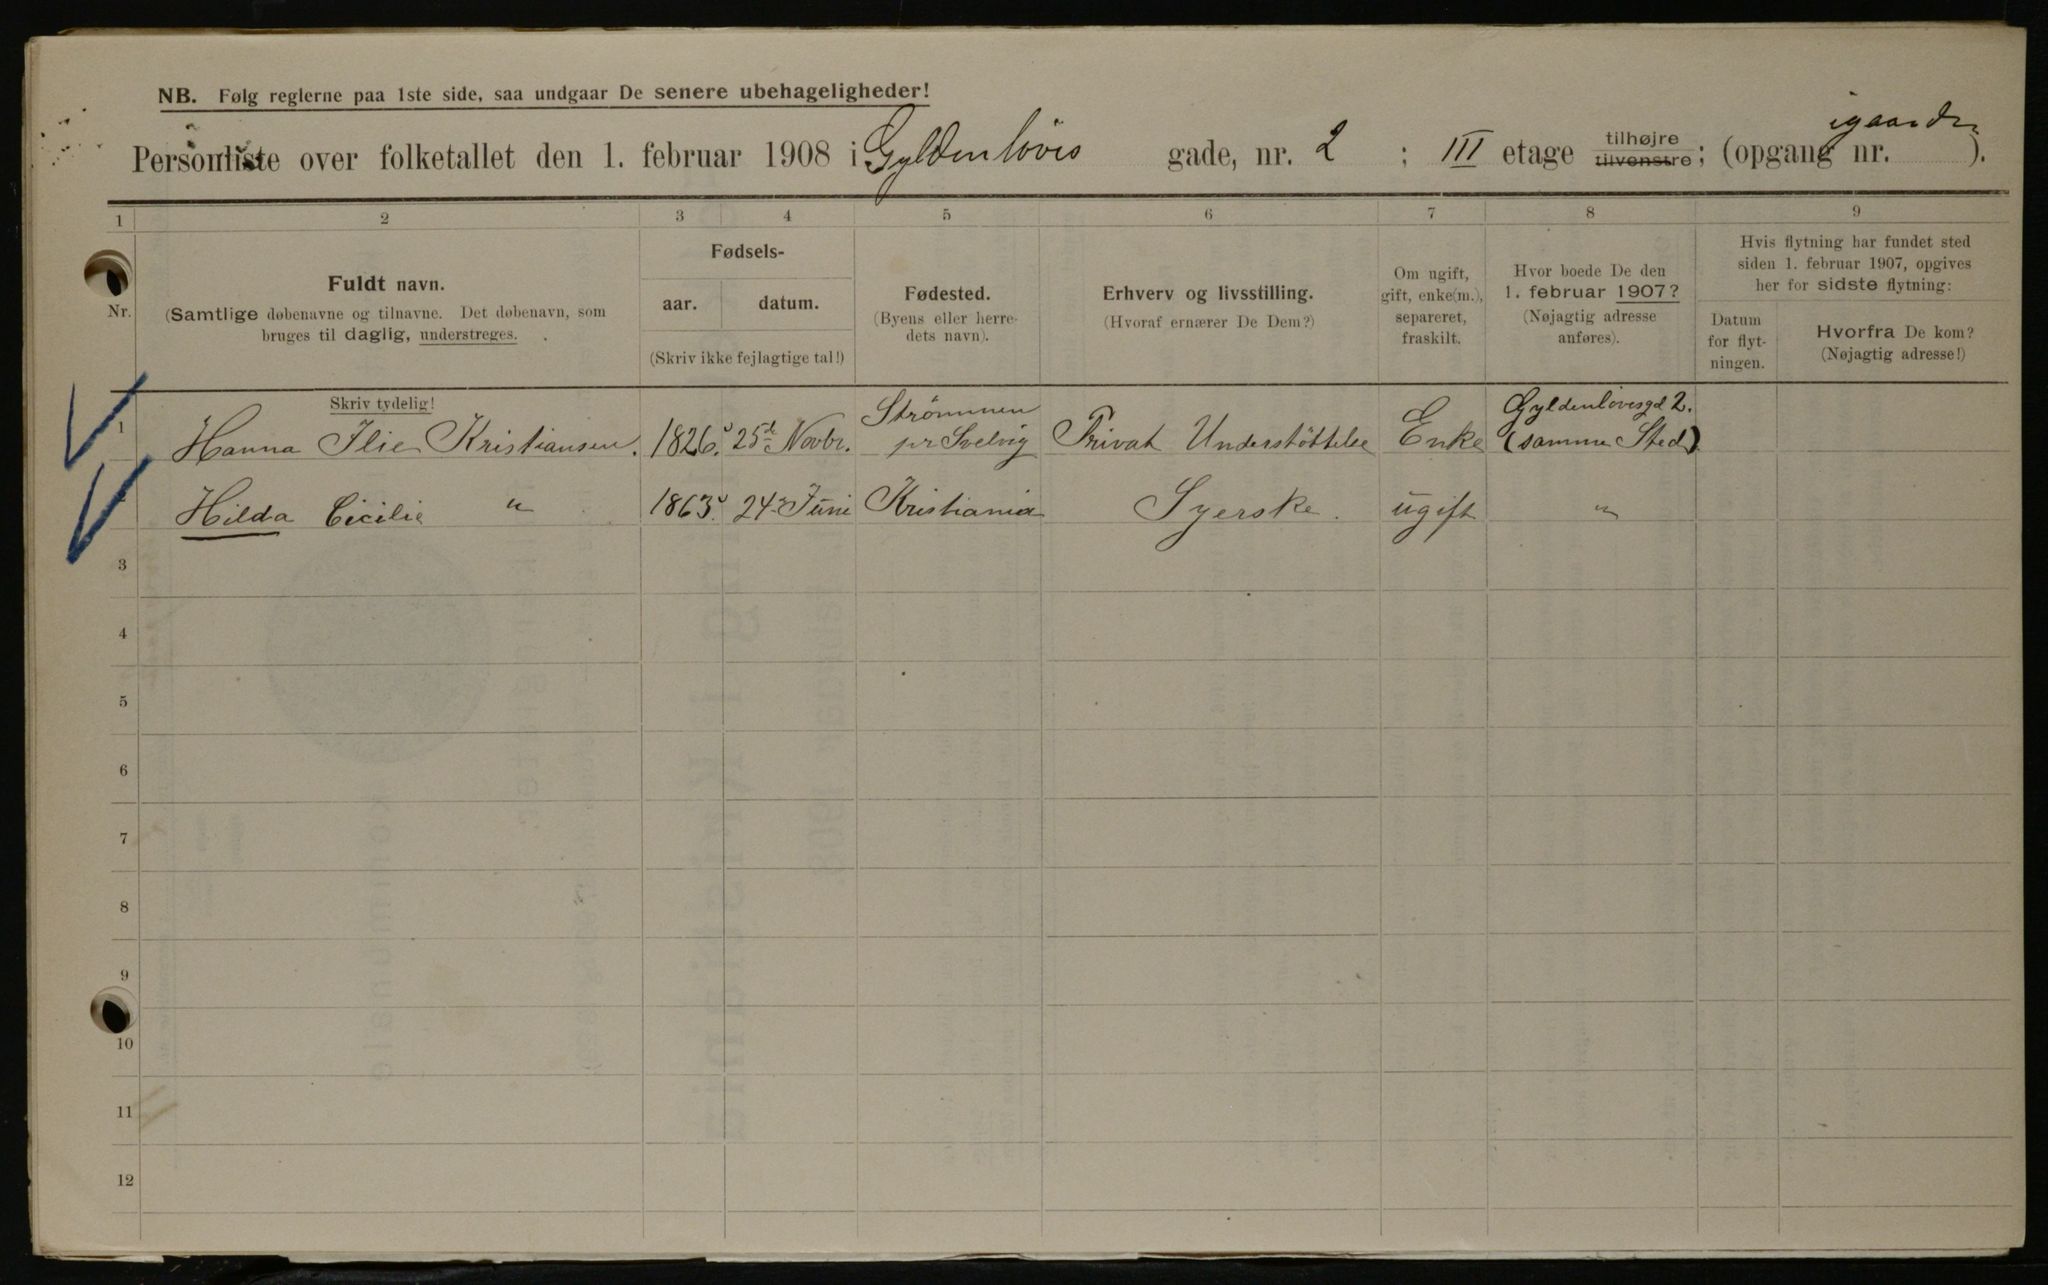 NB. Følg reglerne paa 1ste side, saa undgaar De senere ubehageligheder!
igaarden
Personliste over folketallet den 1. februar 1908 i Gyldenløves gade, nr. 2 ; III etage tilhøjre tilvenstre; (opgang nr. ).
1 2 3 4 5 6 7 8 9
Nr.
Fuldt navn.
(Samtlige døbenavne og tilnavne. Det døbenavn, som
bruges til daglig, understreges.
Fødsels-
aar. datum.
(Skriv ikke fejlagtige tal!)
Fødested.
(Byens eller herre-
dets navn).
Erhverv og livsstilling.
(Hvoraf ernærer De Dem?)
Om ugift,
gift, enke(m.),
separeret,
fraskilt.
Hvor boede De den
1. februar 1907?
(Nøjagtig adresse
anføres).
Hvis flytning har fundet sted
siden 1. februar 1907, opgives
her for sidste flytning:
Datum
for flyt-
ningen.
Hvorfra De kom?
(Nøjagtig adresse!)
Skriv tydelig!
1 Hanna Ilie Kristiansen. 1826. 25de Novbr. Strømmen
pr Svelvig Privat Understøttelse Enke Gyldenløvesgd 2.
(samme Sted)
2 Hilda Cicilie " 1863. 24 Juni Kristiania Syerske. ugift "
3
4
5
6
7
8
9
10
11
12